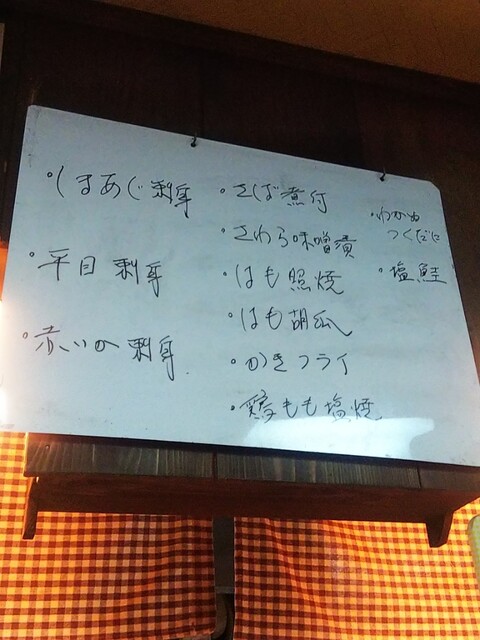 ・しまあじ刺身
・平目 刺身
・赤いか 刺身
・さば煮付
・さわら味噌漬
・はも照焼
・はも胡瓜
・かきフライ
・鶏もも塩焼
・わかめ
つくだに
・塩鮭